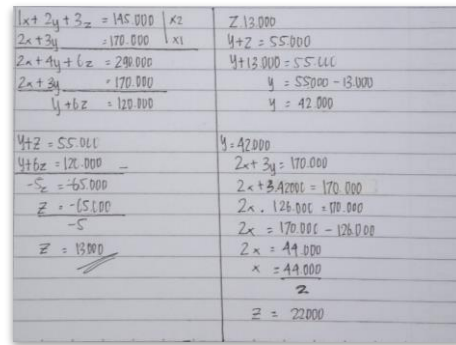 1x + 2y + 3z = 145.000 | x2
2x + 3y = 170.000 | x1
2x + 4y + 6z = 290.000
2x + 3y = 170.000
y + 6z = 120.000
y+z = 55.000
y+6z = 120.000 -
-5z = -65.000
z = -65.000
-5
z = 13000
z 13.000
y+z = 55.000
y+13.000 = 55.000
y = 55000 - 13.000
y = 42.000
y = 42000
2x + 3y = 170.000
2x + 3.42000 = 170.000
2x . 126.000 = 170.000
2x = 170.000 - 126.000
2x = 44.000
x = 44.000
2
z = 22000